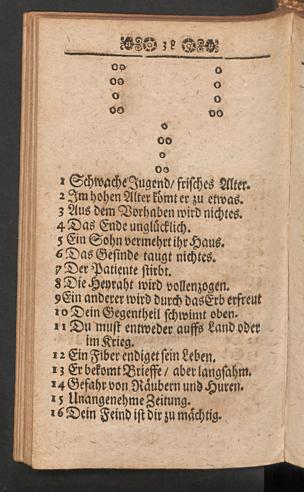 38
1 Schwache Jugend/ frisches Alter.
2 Im hohen Alter kömt er zu etwas.
3 Aus dem Vorhaben wird nichtes.
4 Das Ende unglücklich.
5 Ein Sohn vermehrt ihr Haus.
6 Das Gesinde taugt nichtes.
7 Der Patiente stirbt.
8 Die Heyraht wird vollenzogen.
9 Ein anderer wird durch das Erb erfreut
10 Dein Gegentheil schwimt oben.
11 Du must entweder auffs Land oder
im Krieg.
12 Ein Fiber endiget sein Leben.
13 Er bekomt Brieffe / aber langsahm.
14 Gefahr von Räubern und Huren.
15 Unangenehme Zeitung.
16 Dein Feind ist dir zu mächtig.